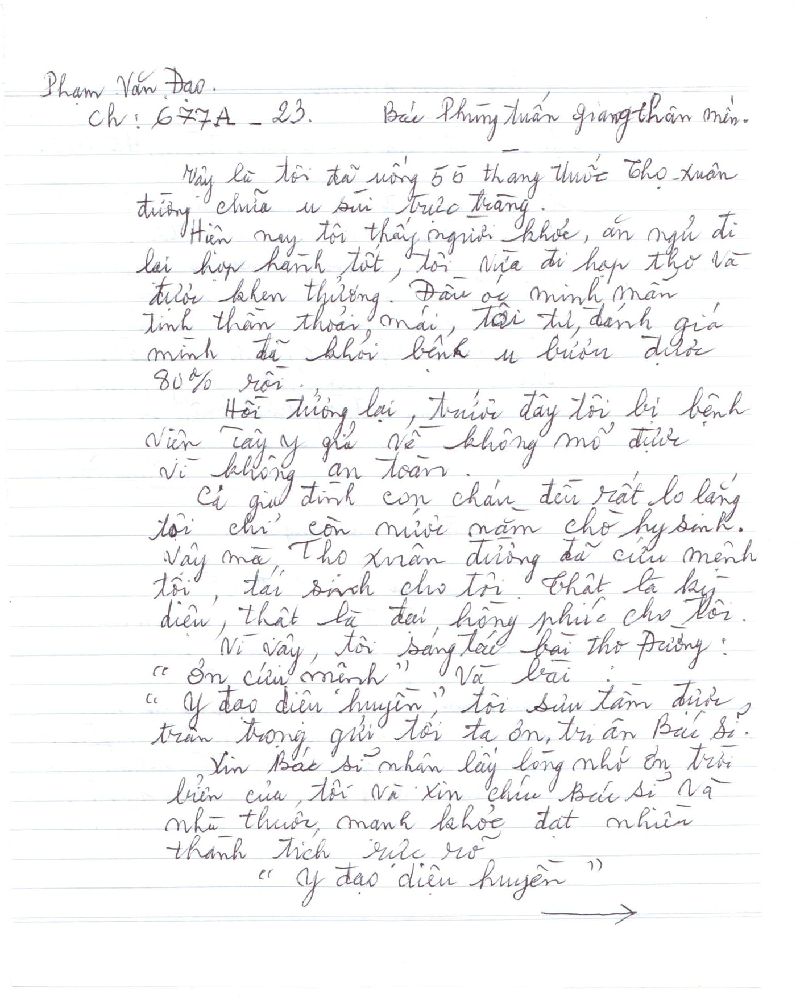 Phạm Văn Đạo.
Ch: 677A - 23. Bác Phùng tuấn giang thân mến.
Vậy là tôi đã uống 55 thang thuốc Thọ xuân
đường chữa u sùi trực tràng.
Hiện nay tôi thấy người khỏe, ăn ngủ đi
lại họp hành tốt, tôi vừa đi họp thơ và
được khen thưởng. Đầu óc minh mẫn,
tinh thần thoải mái, tôi tự đánh giá
mình đã khỏi bệnh u bướu được
80% rồi.
Hồi tưởng lại, trước đây tôi bị bệnh
viện Tây y trả về không mổ được
vì không an toàn.
Cả gia đình con cháu đều rất lo lắng
tôi chỉ còn nước nằm chờ hy sinh.
Vậy mà, Thọ xuân đường đã cứu mệnh
tôi, tái sinh cho tôi. Thật là kỳ
diệu, thật là đại hồng phúc cho tôi.
Vì vậy, tôi sáng tác bài thơ Đường:
“ Ơn cứu mệnh” và bài :
“ Y đạo diệu huyền”, tôi sưu tầm được,
trân trọng gửi tới tạ ơn, tri ân Bác sĩ.
Xin Bác sĩ nhận lấy lòng nhớ ơn trời
biển của tôi và xin chúc Bác sĩ và
nhà thuốc, mạnh khỏe đạt nhiều
thành tích rực rỡ
“ Y đạo diệu huyền ”
→